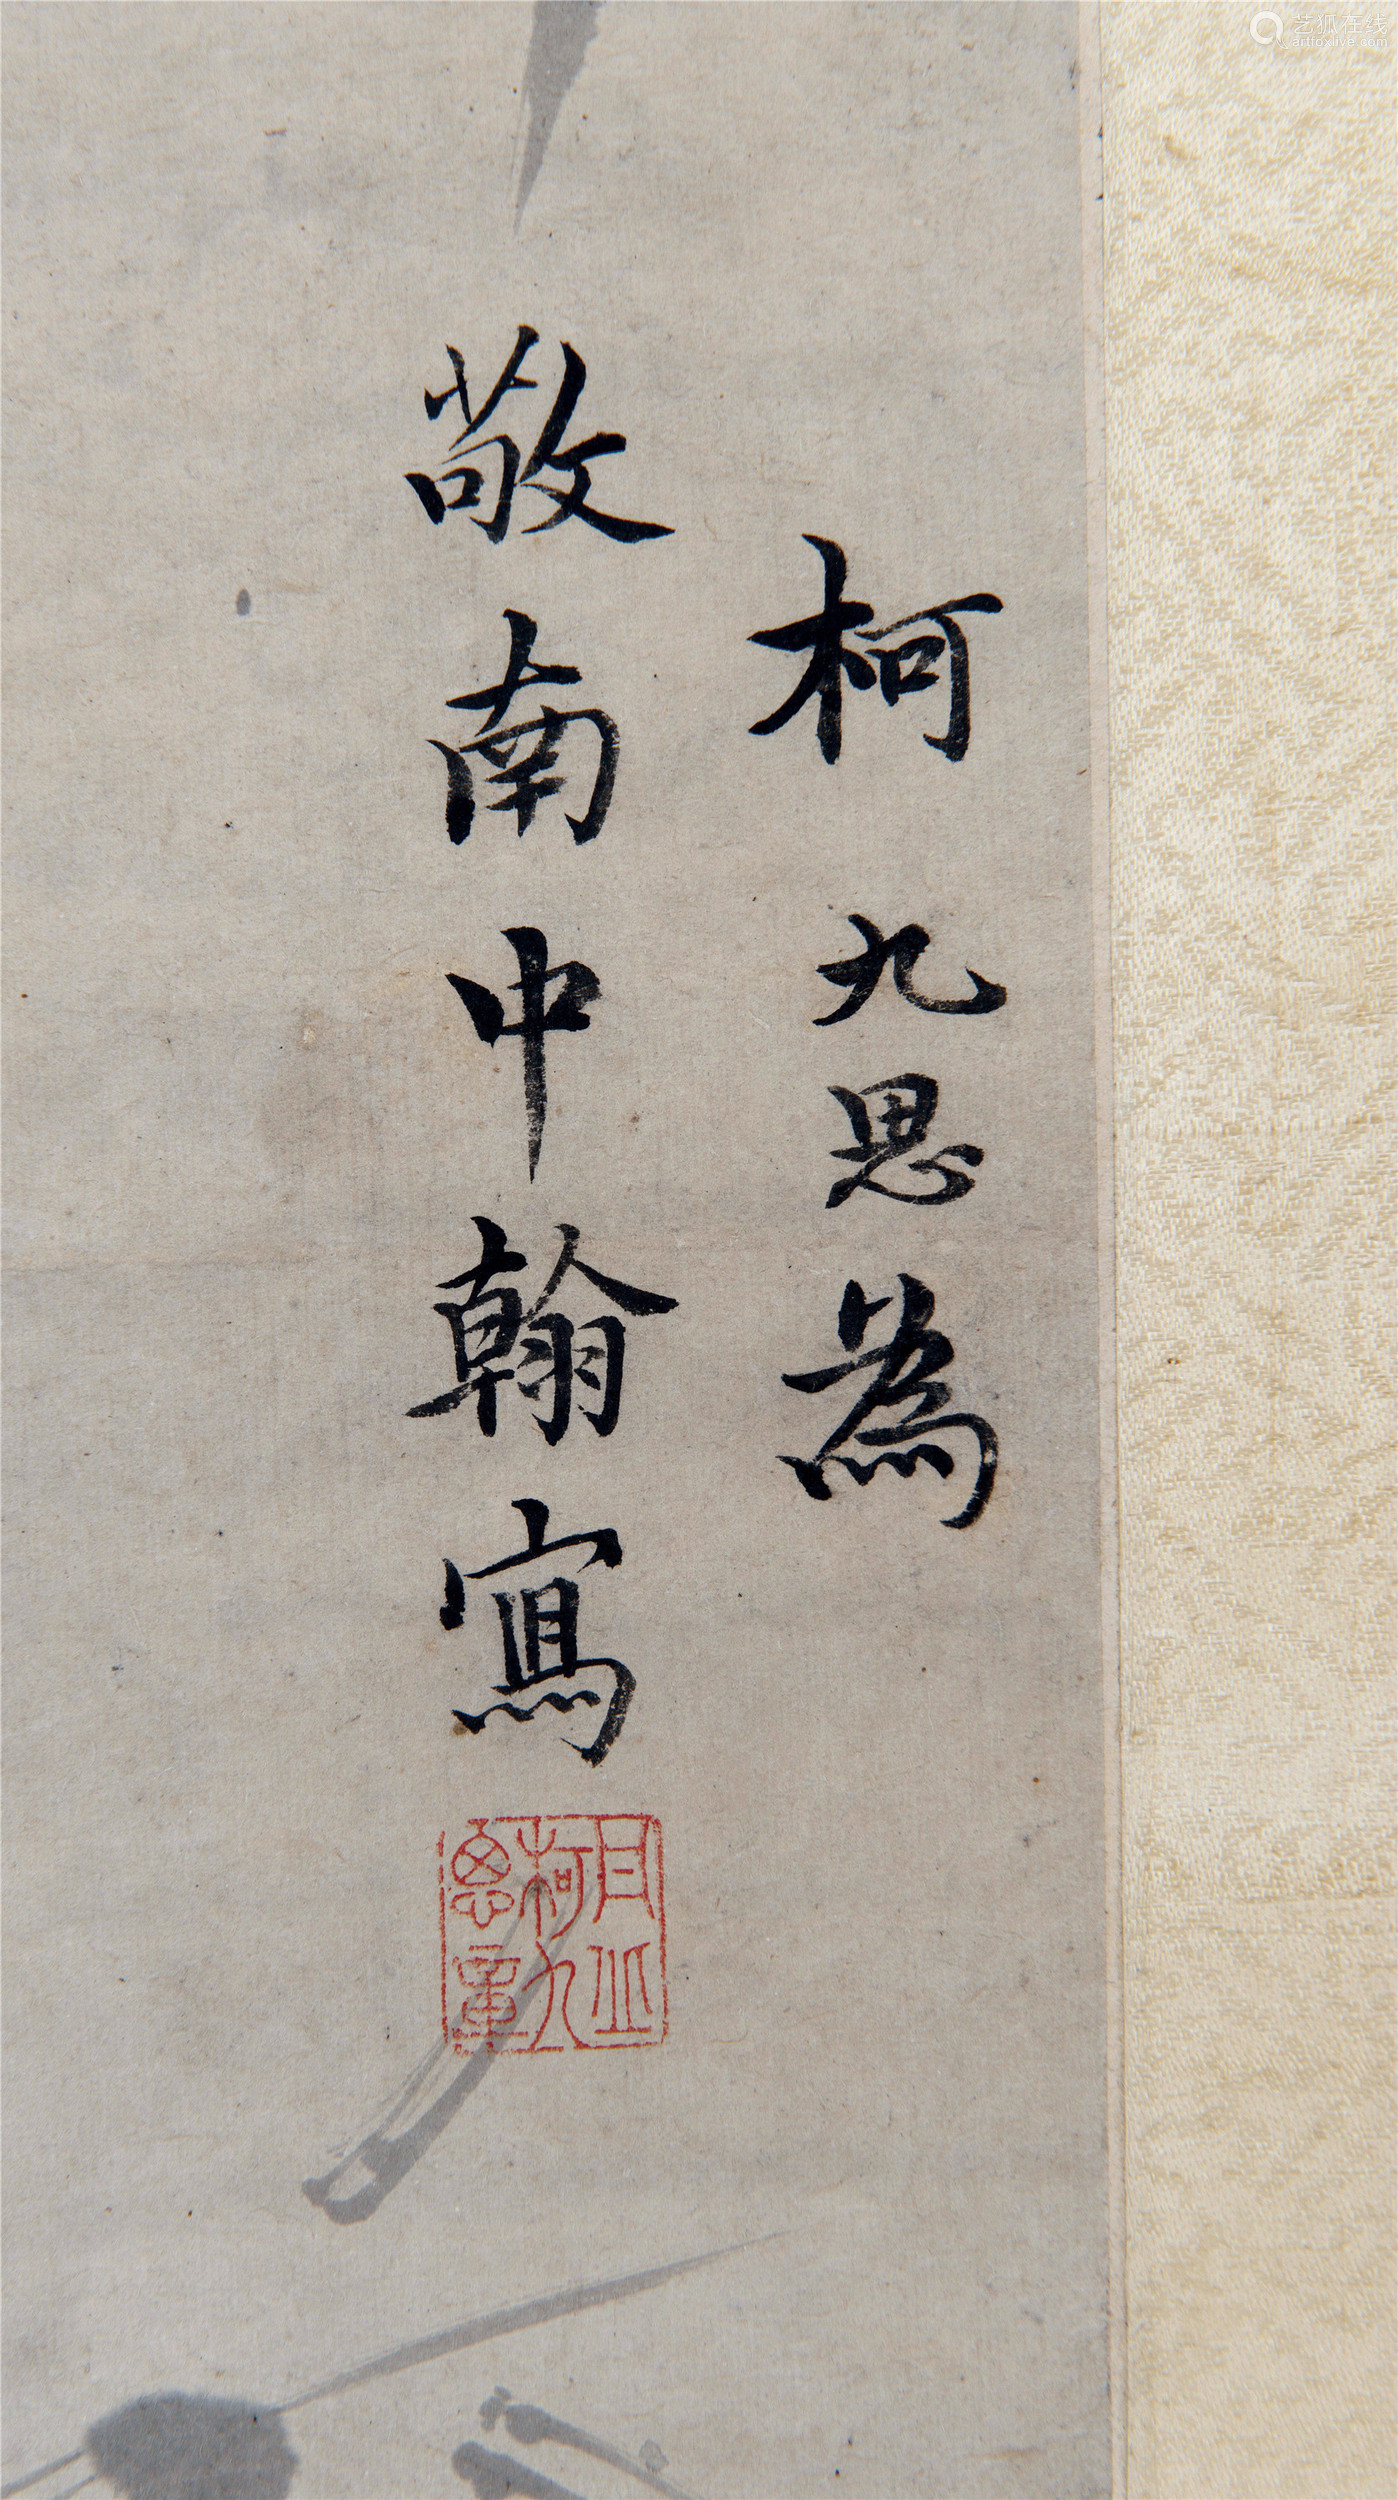 柯九思為
敬南中翰寫
柯九思
艺狐在线
artfoxlive.com